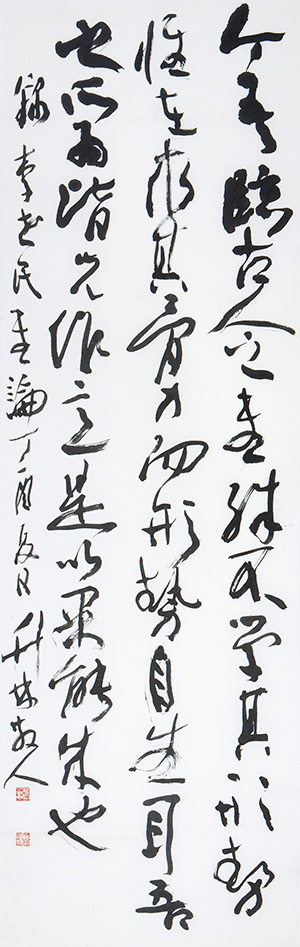 今吾臨古人之書殊不学其形勢
惟在求其骨力而形勢自生耳吾
之所為皆先作意是以果能成也
錄李世民書論丁酉夏日升林散人